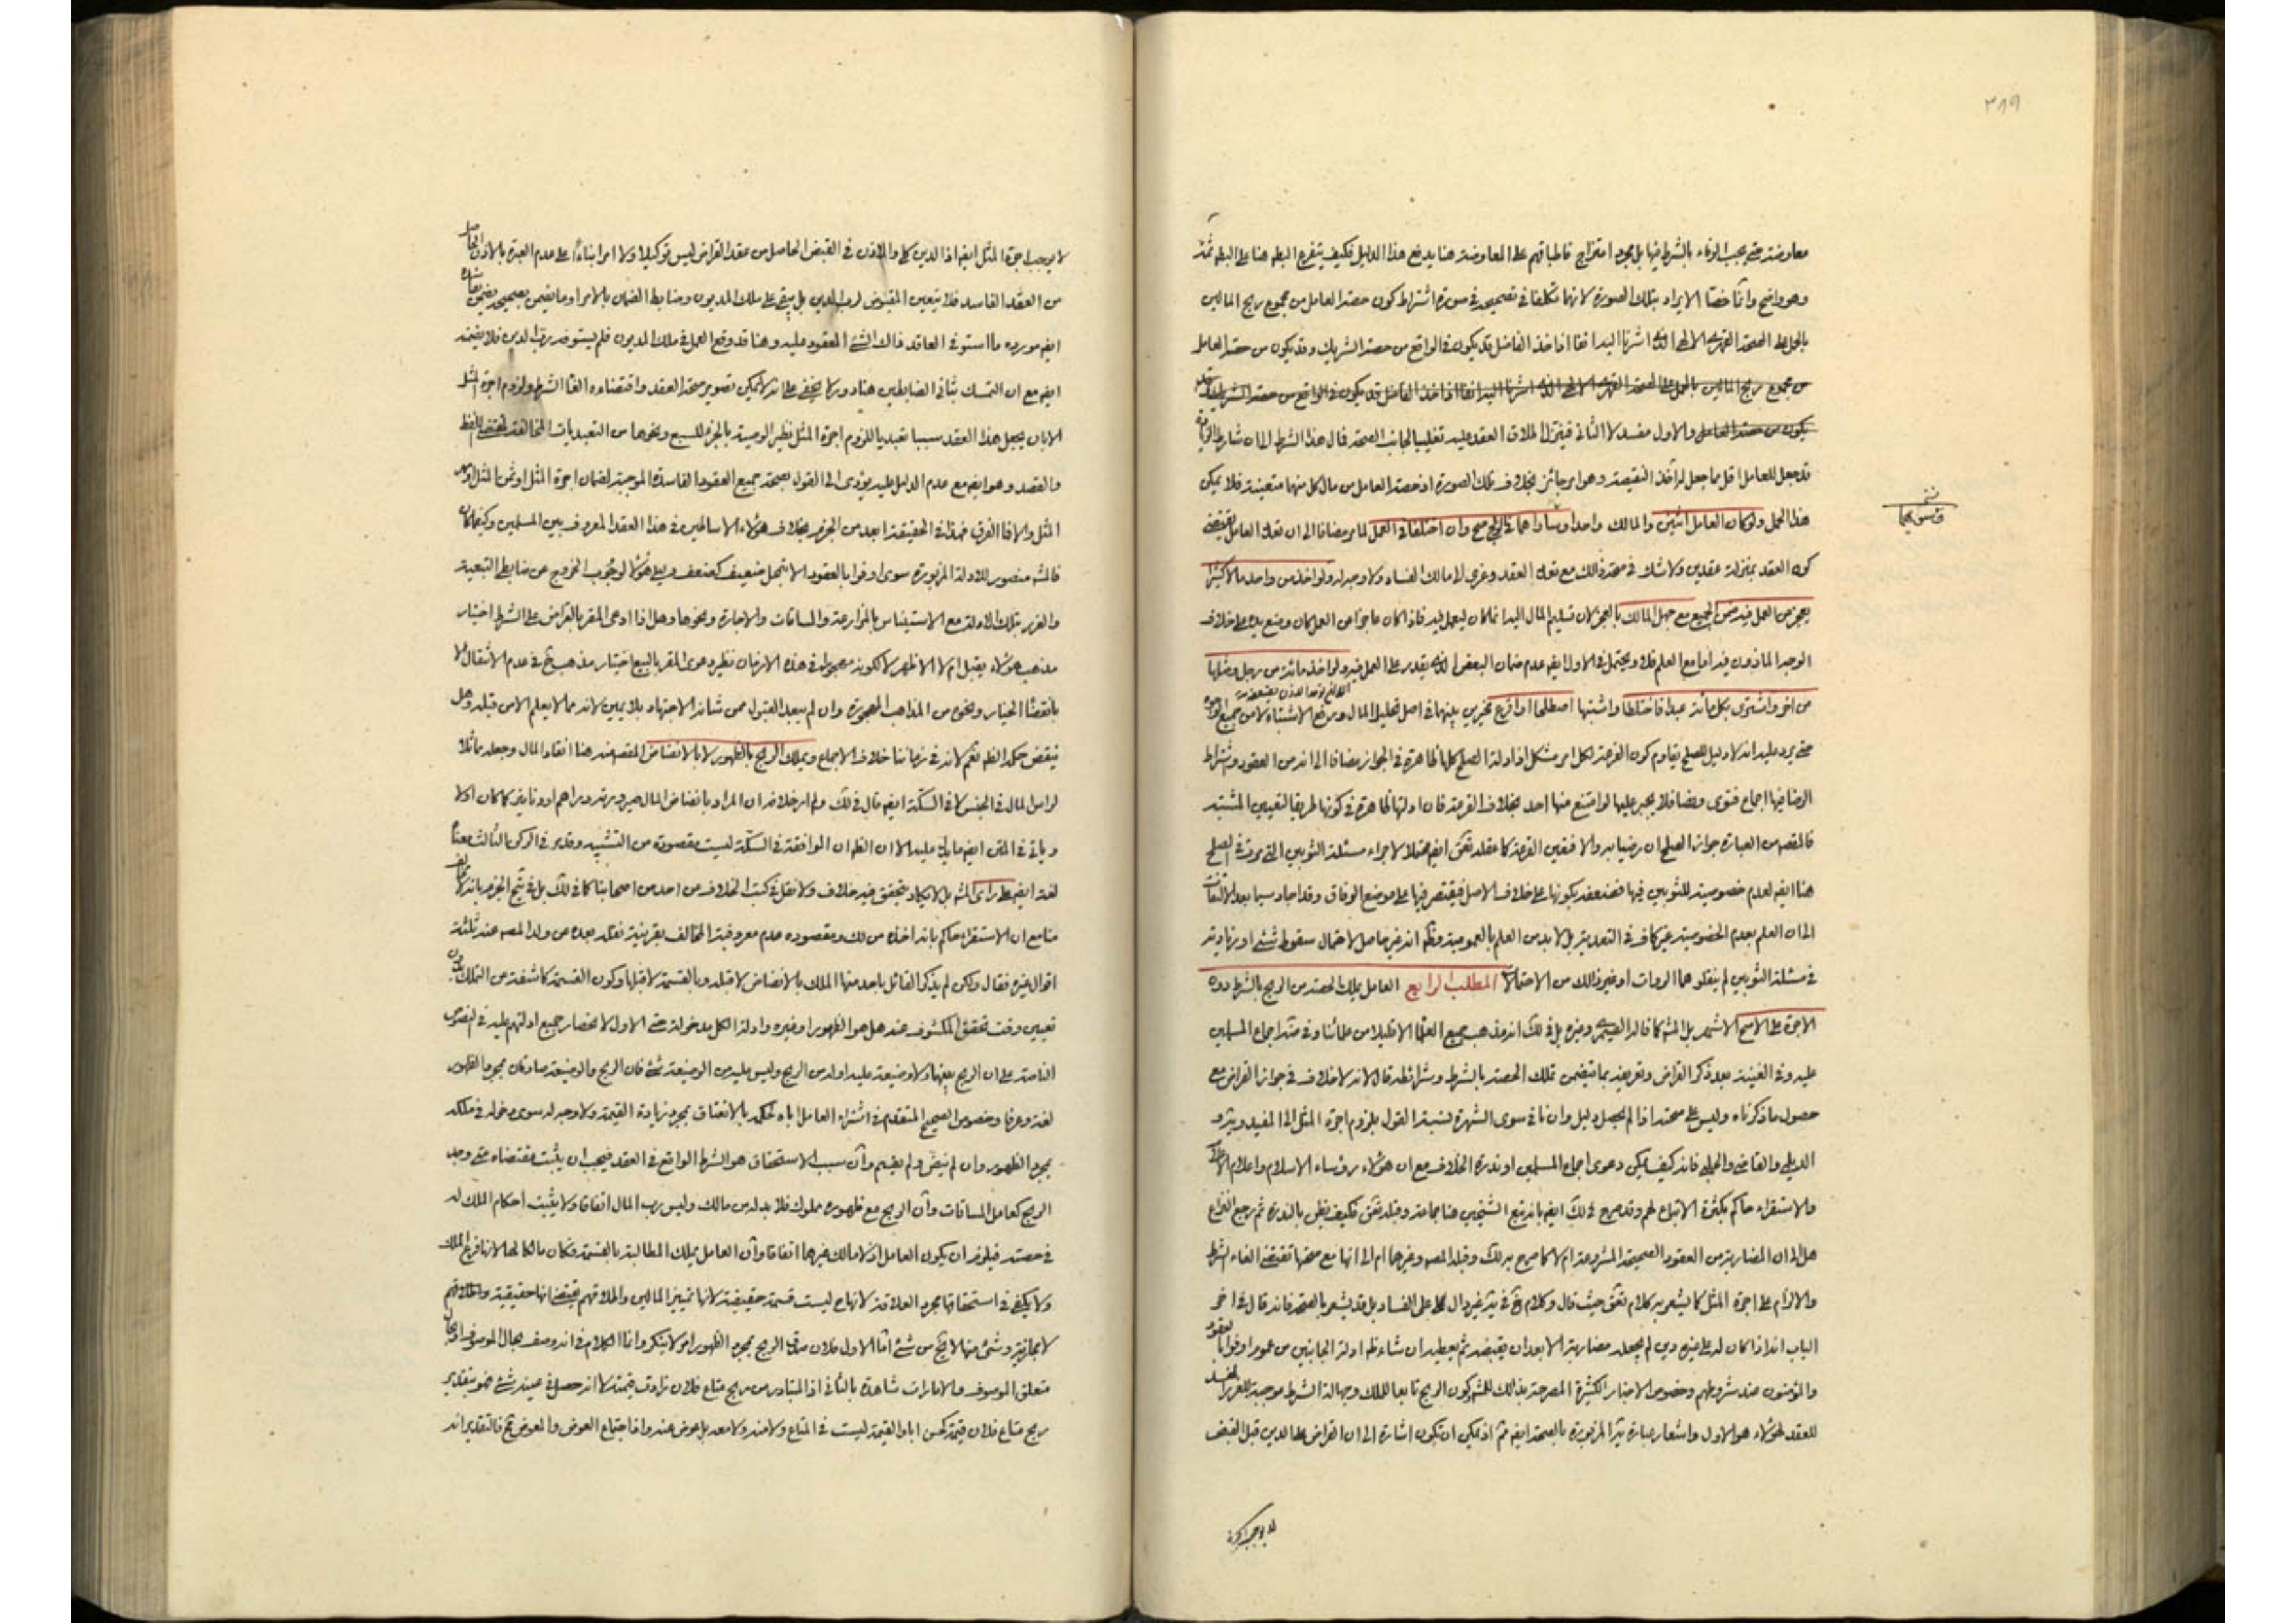 ٣٨٩
معاوضة حتى يجب الوفاء بالشرط فيها بل مجرد امتزاج فاطباقهم على المعاوضة هنا يدفع هذا الدليل فكيف يتفرع البطل هنا على البطل ثمة
وهو واضح وانما خصا الايراد بتلك الصورة لانهما تكلفا في تصحيحه في صورة اشتراط كون حصة العامل من مجموع ربح المالين
بالحمل على الصحة القهرية الذي اشرنا اليه انفا اذ اخذ الفاضل قد يكون في الواقع من حصة الشريك وقد يكون من حصة العامل
من مجموع ربح المالين بالحمل على الصحة القهرية الذي اشرنا اليه انفا اذ اخذ الفاضل قد يكون في الواقع من حصة الشريك وقد
يكون من حصة العامل والاول مفسد لا الثاني فينزل اطلاق العقد عليه تغليبا لجانب الصحة قال هذا الشرط الى ان شارط
قد جعل للعامل اقل مما جعل له اخذ النقيصة وهو امر جائز بخلاف تلك الصورة اذ حصة العامل من مال كل منهما متعينة فلا يمكن
هذا الحمل ولو كان العامل اثنين والمالك واحدا وساواهما في الربح صح وان اختلفا في العمل لما مر مضافا الى ان تعدد العامل يقتضي
كون العقد بمنزلة عقدين ولا شك في صحة ذلك مع تعدد العقد وعزى الى مالك الفساد ولا وجه له ولو اخذ من واحد مالا كثيرا
يعجز عن العمل فيه ضمن الجميع مع جهل المالك بالعجز لان تسليم المال اليه انما كان ليعمل فيه فاذا كان عاجزا عن العمل كان وضع يده على خلاف
الوجه الماذون فيه اما مع العلم فلا ويحتمل في الاول ايضا عدم ضمان البعض الذي يقدر على العمل فيه ولو اخذ مائة من رجل ومثلها
من اخر واشترى بكل مائة عبدا فاختلطا واشتبها اصطلحا او اقرع تحرير بينهما في اصل تحليل المال ورفع الاشتباه لا من جميع
حتى يرد عليه انه لا دليل للصلح يقاوم كون القرعة لكل امر مشكل اذ ادلة الصلح كلها ظاهرة في الجواز مضافا الى انه من العقود واشتراط
الرضا فيها اجماع فتوى ونصا فلا يجبر عليها لو امتنع منها احد بخلاف القرعة فان ادلتها ظاهرة في كونها طريقا لتعيين المشتبه
فالمقصد من العبارة جواز الصلح ان رضيا به والا فتعين القرعة كما عقله محتملا لاجراء مسئلة الثوبين التي مرت في الصلح
هنا ايضا لعدم خصوصية للثوبين فيها فضعفه بكونها على خلاف الاصل فيقتصر فيها على موضع الوفاق وقد اجاد سيما بعد الالتفات
الى ان العلم بعدم الخصوصية غير كاف في التعدية بل لا بد من العلم بالعمومية وهو غير حاصل لاحتمال سقوط شئ او زيادته
في مسئلة الثوبين لم ينقلوهما الروات او غير ذلك من الاحتمالات المطلب الرابع العامل يملك الحصة من الربح بالشرط دون
الاجرة على الاصح الاشهر بل المشهور كما قاله الصيمري وغيره بل في لك انه مذهب جميع العلماء الا قليلا من علمائنا وفي اجماع المسلمين
عليه وفي الغنية بعد ذكر القراض وتعريفه بما يتضمن تملك الحصة بالشرط وشرائطه قال انه لا خلاف في جواز القراض مع
حصول ما ذكرناه وليس على صحته اذا لم يحصل دليل وان نافى سوى الشهرة نسبة القول بلزوم اجرة المثل الى المفيد
الديلمي والقاضي والحلبي فانه كيف يمكن دعوى اجماع المسلمين او ندرة الخلاف مع ان هؤلاء رؤساء الاسلام واعلام
والاستقراء حاكم بكثرة الاتباع لهم وقد صرح في لك ايضا بانه تبع الشيخين هنا جماعة فكيف يظن بالندرة ثم مرجع النزاع
هل الى ان المضاربة من العقود الصحيحة المشروعة ام لا كما صرح به لك وقبله المصنف وغيرهما ام الى انها مع صحتها تقتضي الغاء الشرط
والالزام على اجرة المثل كما يشعر به كلام حيث قال وكلام غير دال على الفساد بل قد يشعر بالصحة فانه قال في اخر
الباب انه اذا كان له على غيره دين لم يجعله مضاربة الا بعد ان يقبضه ثم يعطيه ان شاء ادلة الجانبين من عموم اوفوا بالعقود
والمؤمنون عند شروطهم وخصوص الاخبار الكثيرة المصرحة بذلك للمشهور وكون الربح تابعا للملك وجهالة الشرط موجبة للغرر المفسد
للعقد لهؤلاء هو الاول واشعار عبارة المزبورة بالصحة ايضا اذ يمكن ان تكون اشارة الى ان القراض على الدين قبل القبض
لا يوجب اجرة
لا يوجب اجرة المثل ايضا اذ الدين كلي والاذن في القبض الحاصل من عقد القراض ليس توكيلا ولا امرا بناء على عدم العبرة بالاذن الحاصل
من العقد الفاسد فلا يتعين المقبوض لرب الدين بل يبقى على ملك المديون وضابط الضمان بالامر او ما يضمن بصحيحه يضمن بفاسده
ايضا مورده ما استوفى العاقد ذلك الشئ المعقود عليه وهنا قد وقع العمل في ملك المديون فلم يستوفه رب الدين فلا يضمنه
ايضا مع ان التمسك بثاني الضابطين هنا دور كما يخفى على انه لا يمكن تصوير صحة العقد واقتضاءه الغاء الشرط ولزوم اجرة المثل
الا بان يجعل هذا العقد سببا تعبديا للزوم اجرة المثل نظير الوصية بالجزء للسبع ونحوها من التعبديات المخالفة لمقتضى اللفظ
والقصد وهو ايضا مع عدم الدليل عليه يؤدى الى القول بصحة جميع العقود الفاسدة الموجبة لضمان اجرة المثل او ثمن المثل
المثل والا فما الفرق فهذا في الحقيقة ابعد من الجزم بخلاف هؤلاء الاساطين في هذا العقد المعروف بين المسلمين وكيفما كان
فالمشهور منصور للادلة المزبورة سوى اوفوا بالعقود
والغرر بتلك الادلة مع الاستيناس بالمزارعة والمساقات والاجارة ونحوها وهل اذا ادعى المقر بالقراض على الشرط اختيار
مذهب هؤلاء يقبل ام لا الاظهر لا لكونه مهجورا في هذه الازمان نظير دعوى المقر بالبيع اختيار مذهب الشيخ في عدم الانتقال الا
بانقضاء الخيار ونحوه من المذاهب المهجورة وان لم يبعد القبول ممن شانه الاجتهاد بلا يمين لانه مما لا يعلم الا من قبله وهل
ينقض حكمه نعم لانه في زماننا خلاف الاجماع ويملك الربح بالظهور لا بالانضاض المقصد منه هنا انقاد المال وجعله مماثلا
لراس المال في الجنس لا في السكة ايضا قال في لك ولم ار خلافه ان المراد بانضاض المال صيرورته دراهم او دنانير كما كان اولا
وياتي في المتن ايضا ما يدل عليه الا ان الظاهر ان الموافقة في السكة ليست مقصودة من التشبيه وقد مر في الركن الثالث معناه
لغة ايضا على راى المشهور بل لا يكاد يتحقق فيه خلاف ولا نقل في كتب الخلاف من احد من اصحابنا كما في لك بل في الجزم بانه لا مخالف
منا مع ان الاستقراء حاكم بانه اخذه من لك ومقصوده عدم معروفية المخالف بقرينة نقله بعده من ولد المصنف عنه ثلثة
اقوال غيره فقال ولكن لم يذكر القائل باحد منها الملك بالانضاض لا قبله وبالقسمة لا قبلها وكون القسمة كاشفة عن الملك بدون
تعيين وقت تحقق المكشوف عنه هل هو الظهور او غيره وادلة الكل مدخولة حتى الاول لانحصار جميع ادلتهم عليه في النصوص
الناصة على ان الربح بينهما ولا وضيعة عليه او له من الربح وليس عليه من الوضيعة شئ فان الربح والوضيعة صادقان بمجرد الظهور
لغة وعرفا وخصوص الصحيح المتقدم في اشتراء العامل اباه لحكمه بالانعتاق بمجرد زيادة القيمة ولا وجه له سوى دخوله في ملكه
بمجرد الظهور وان لم ينض ولم يقسم وان سبب الاستحقاق هو الشرط الواقع في العقد فيجب ان يثبت مقتضاه متى وجد
الربح كعامل المساقات وان الربح مع ظهوره مملوك فلا بد له من مالك وليس رب المال اتفاقا ولا يثبت احكام الملك له
في حصته فيلزم ان يكون العامل اذ لا مالك غيرهما اتفاقا وان العامل يملك المطالبة بالقسمة فكان مالكا لها لانها فرع الملك
ولا يكفي في استحقاقها مجرد العلاقة لانها ح ليست قسمة حقيقية لانها تمييز المالين واطلاقهم يقتضي انها حقيقية
لا مجازية وشئ منها لا ينتج من شئ اما الاول فلان صدق الربح بمجرد الظهور امر لا ينكر وانما الكلام في انه وصف بحال الموصوف او بحال
متعلق الموصوف والامارات شاهدة بالثاني اذ المتبادر من ربح متاع فلان زادت قيمته لا انه حصل في عينه شئ فهو بتقدير
ربح متاع فلان قيمة كحسن ابا والقيمة ليست في المتاع ولا منه ولا معه بل عوض عنه واما اجتماع العوض والمعوض فالتقدير انه